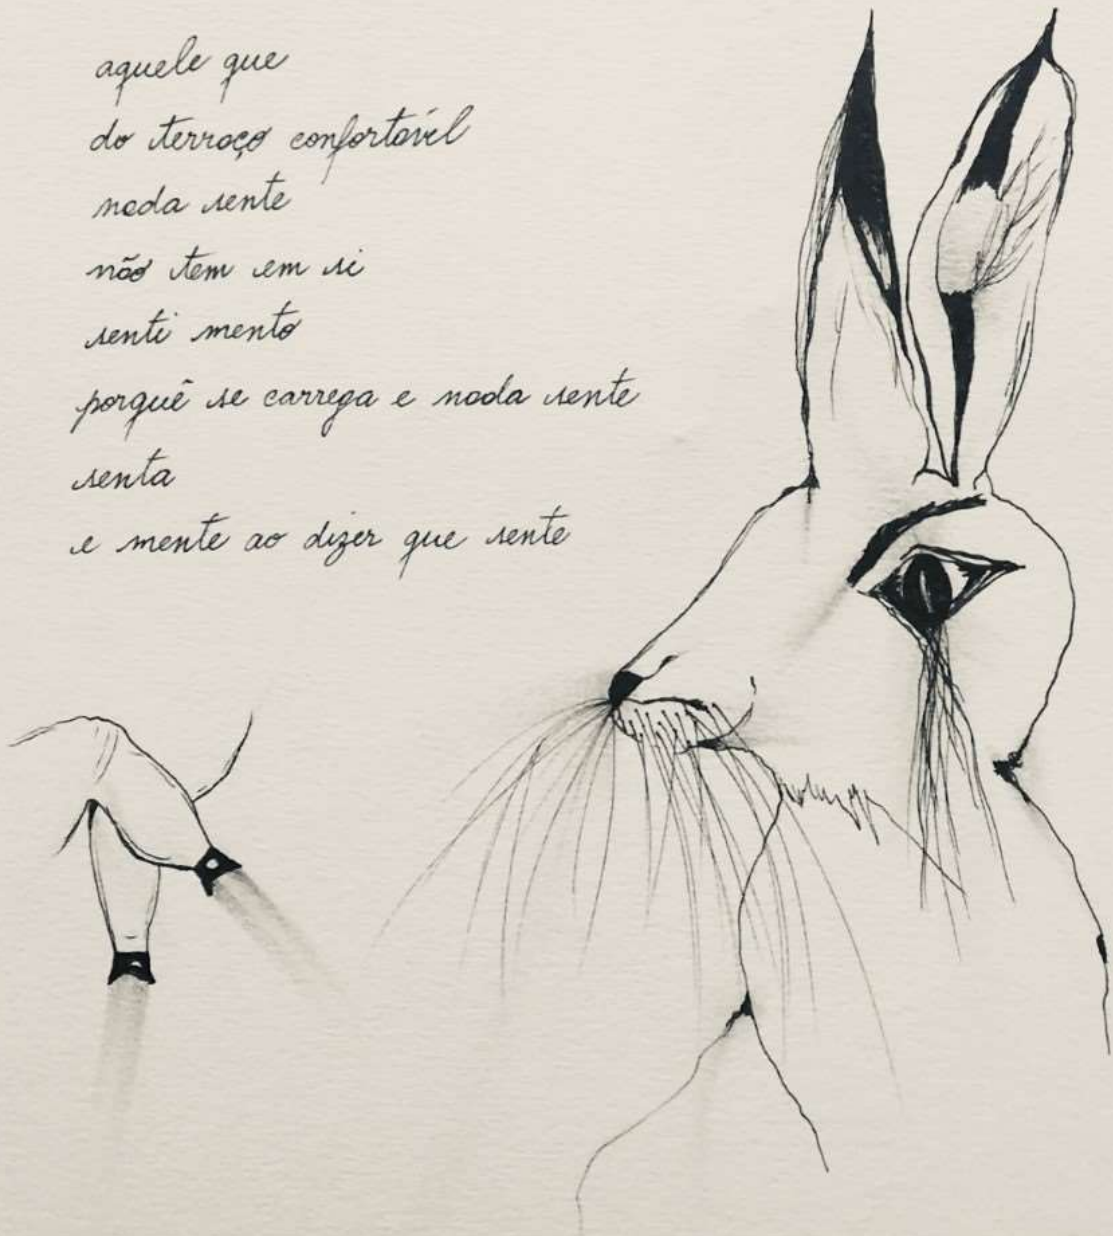 aquele que
do terraço confortável
nada sente
não tem em si
senti mento
porquê se carrega e nada sente
senta
e mente ao dizer que sente